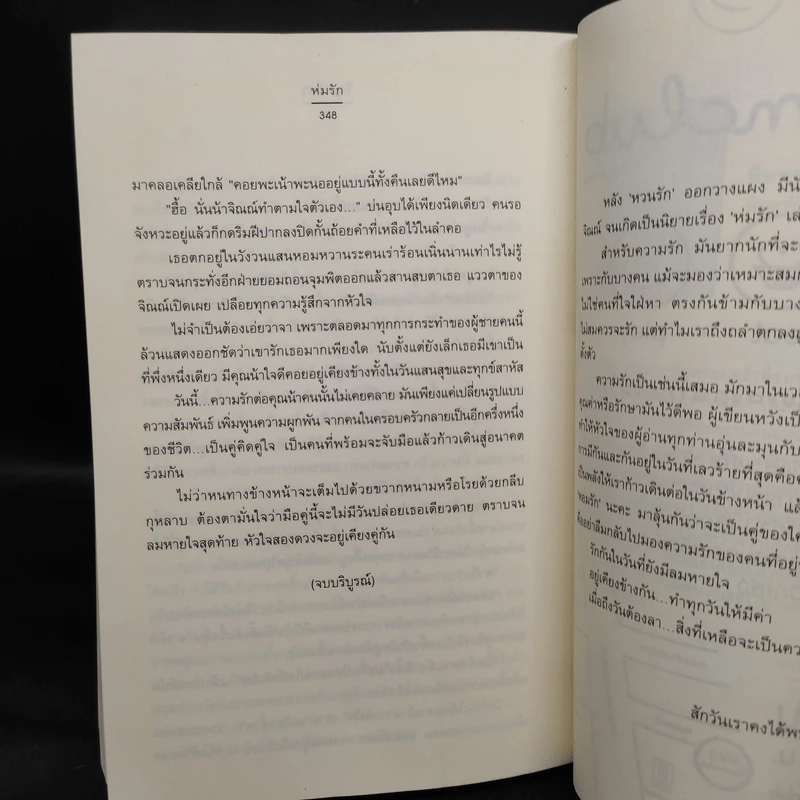 ห่มรัก
348
มาคลอเคลียใกล้ "คอยพะเน้าพะนออยู่แบบนี้ทั้งคืนเลยดีไหม"
"ฮื้อ นั่นน้าจิณณ์ทำตามใจตัวเอง..." บ่นอุบได้เพียงนิดเดียว คนรอ
จังหวะอยู่แล้วก็กดริมฝีปากลงปิดกั้นถ้อยคำที่เหลือไว้ในลำคอ
เธอตกอยู่ในวังวนแสนหอมหวานระคนเร่าร้อนเนิ่นนานเท่าไรไม่รู้
ตราบจนกระทั่งอีกฝ่ายยอมถอนจุมพิตออกแล้วสานสบตาเธอ แววตาของ
จิณณ์เปิดเผย เปลือยทุกความรู้สึกจากหัวใจ
ไม่จำเป็นต้องเอ่ยวาจา เพราะตลอดมาทุกการกระทำของผู้ชายคนนี้
ล้วนแสดงออกชัดว่าเขารักเธอมากเพียงใด นับตั้งแต่ยังเล็กเธอมีเขาเป็น
ที่พึ่งหนึ่งเดียว มีคุณน้าใจดีคอยอยู่เคียงข้างทั้งในวันแสนสุขและทุกข์สาหัส
วันนี้...ความรักต่อคุณน้าคนนั้นไม่เคยคลาย มันเพียงแค่เปลี่ยนรูปแบบ
ความสัมพันธ์ เพิ่มพูนความผูกพัน จากคนในครอบครัวกลายเป็นอีกครึ่งหนึ่ง
ของชีวิต...เป็นคู่คิดคู่ใจ เป็นคนที่พร้อมจะจับมือแล้วก้าวเดินสู่อนาคต
ร่วมกัน
ไม่ว่าหนทางข้างหน้าจะเต็มไปด้วยขวากหนามหรือโรยด้วยกลีบ
กุหลาบ ต้องตามั่นใจว่ามือคู่นี้จะไม่มีวันปล่อยเธอเดียวดาย ตราบจน
ลมหายใจสุดท้าย หัวใจสองดวงจะอยู่เคียงคู่กัน
(จบบริบูรณ์)
หลัง 'หวนรัก' ออกวางแผง มีนั
จิณณ์ จนเกิดเป็นนิยายเรื่อง 'ห่มรัก' เล
สำหรับความรัก มันยากนักที่จะ
เพราะกับบางคน แม้จะมองว่าเหมาะสม
ไม่ใช่คนที่ใจใฝ่หา ตรงกันข้ามกับบาง
ไม่สมควรจะรัก แต่ทำไมเราถึงถลำตกลง
ตั้งตัว
ความรักเป็นเช่นนี้เสมอ มักมาในเว
คุณค่าหรือรักษามันไว้ดีพอ ผู้เขียนหวังเป็น
ทำให้หัวใจของผู้อ่านทุกท่านอุ่นละมุนกับ
การมีกันและกันอยู่ในวันที่เลวร้ายที่สุดคือ
เป็นพลังให้เราก้าวเดินต่อในวันข้างหน้า แล้
'หอมรัก' นะคะ มาลุ้นกันว่าจะเป็นคู่ของใค
คืออย่าลืมกลับไปมองความรักของคนที่อยู่
รักกันในวันที่ยังมีลมหายใจ
อยู่เคียงข้างกัน...ทำทุกวันให้มีค่า
เมื่อถึงวันต้องลา...สิ่งที่เหลือจะเป็นคว
สักวันเราคงได้พ